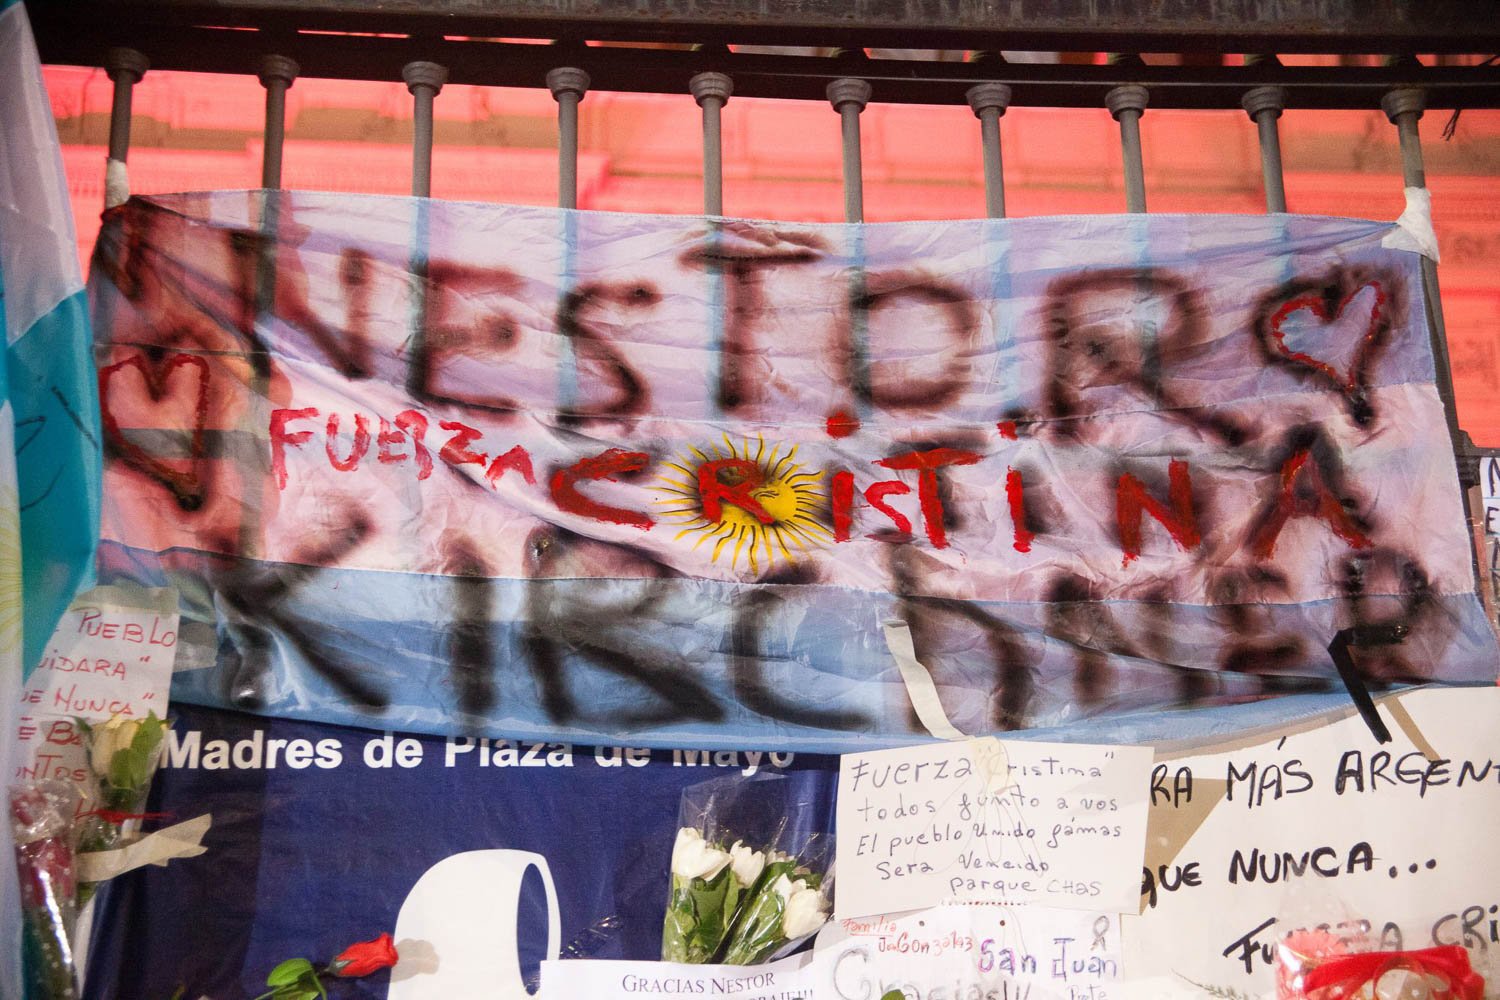 NESTOR
FUERZA CRISTINA
KIRCHNER
PUEBLO
NUNCA"
Madres de Plaza de Mayo
Fuerza "Cristina"
todos junto a vos
El pueblo Unido jámas
Sera Vencido
parque CHAS
MÁS ARGEN
QUE NUNCA...
FUERZA CRI
Familia
González
San Juan
Gracias!!
GRACIAS NESTOR